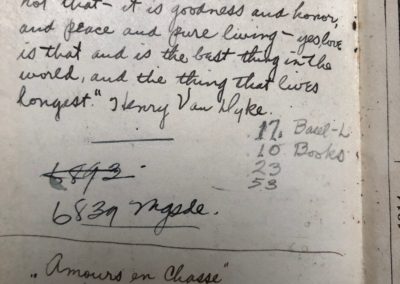 not that – it is goodness and honor,
and peace and pure living – yes, love
is that and is the best thing in the
world, and the thing that lives
longest." Henry Van Dyke.
17. Basel-L
10 Books
23
53
6893
6839
„Amours en Chasse"